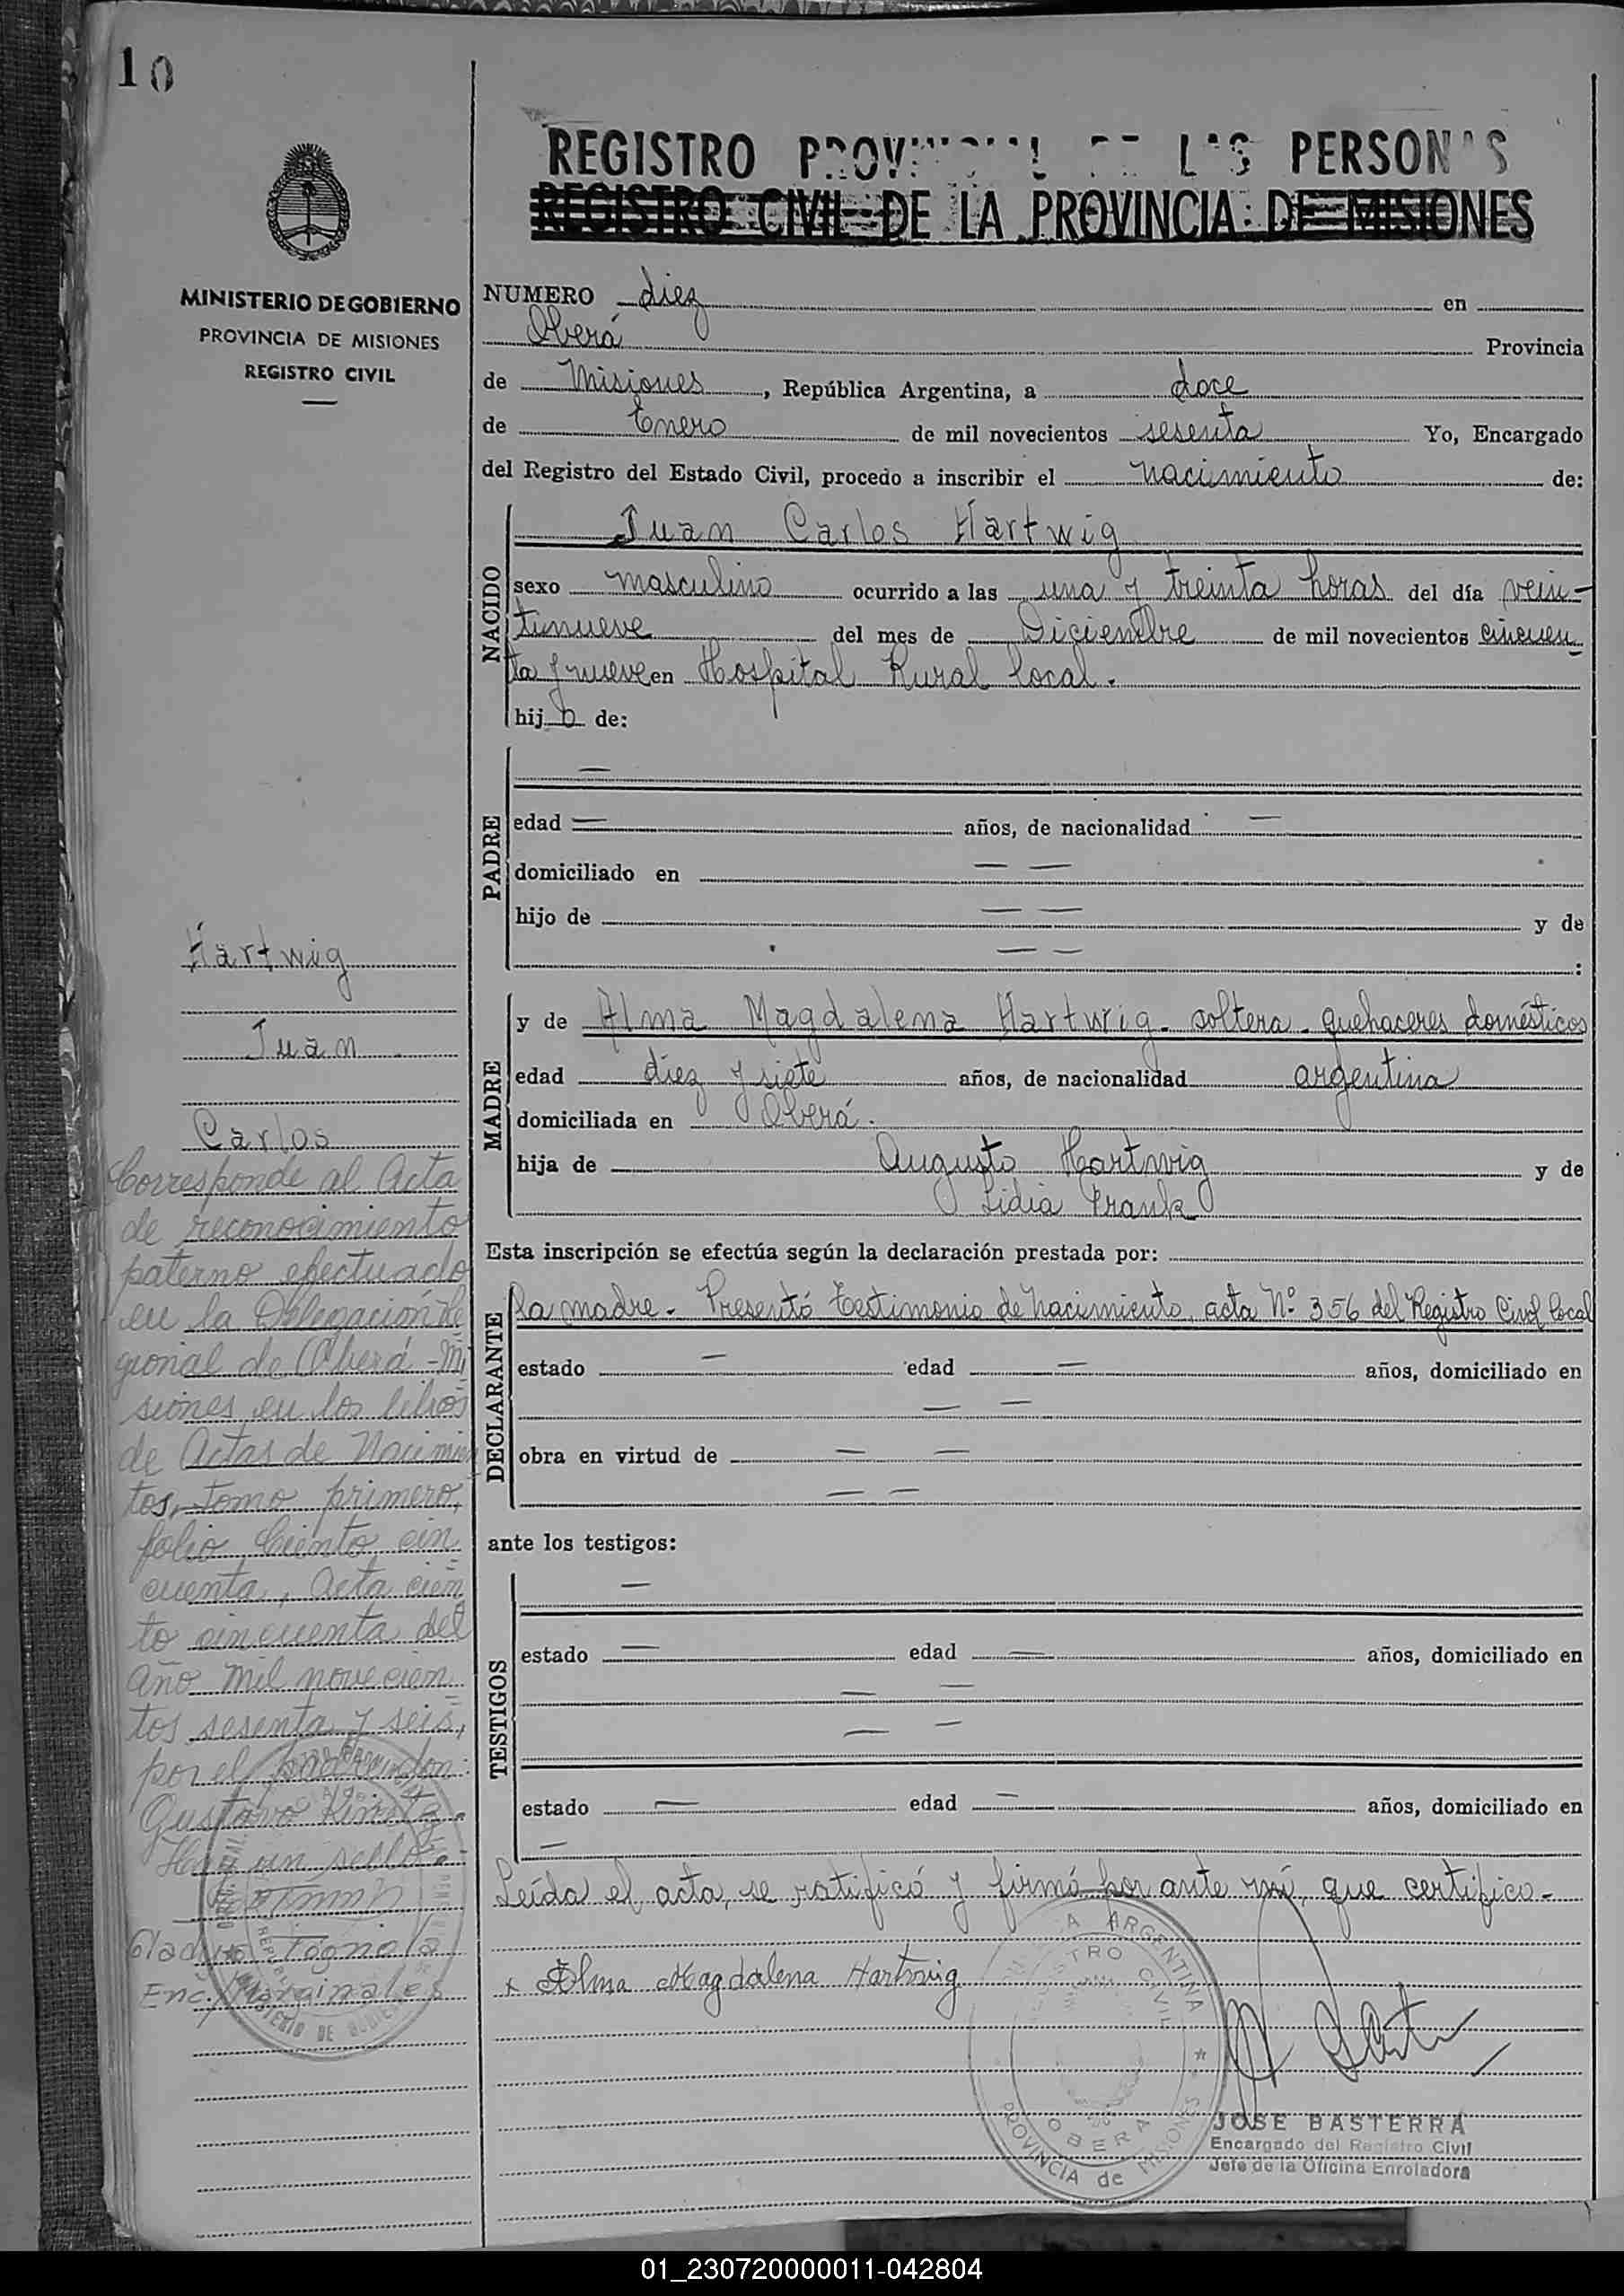 10
MINISTERIO DE GOBIERNO
PROVINCIA DE MISIONES
REGISTRO CIVIL
Hartwig
Juan
Carlos
Corresponde al Acta
de reconocimiento
paterno efectuado
en la Delegación Re
gional de Oberá - Mi
siones, en los libros
de Actas de Nacimien
tos, tomo primero,
folio ciento cin
cuenta, Acta cien
to cincuenta del
año mil novecien
tos sesenta y seis,
por el padre don:
Gustavo
Hay un sello
Enc. Marginales
REGISTRO PROVINCIAL DE LAS PERSONAS
REGISTRO CIVIL DE LA PROVINCIA DE MISIONES
NUMERO diez en
Oberá Provincia
de Misiones, República Argentina, a doce
de Enero de mil novecientos sesenta Yo, Encargado
del Registro del Estado Civil, procedo a inscribir el nacimiento de:
NACIDO
Juan Carlos Hartwig
sexo masculino ocurrido a las una y treinta horas del día vein-
tinueve del mes de Diciembre de mil novecientos cincuen
ta y nueve en Hospital Rural local.
hijo de:
PADRE
—
edad — años, de nacionalidad —
domiciliado en — —
hijo de — — y de
— — :
MADRE
y de Alma Magdalena Hartwig - soltera - quehaceres domésticos
edad diez y siete años, de nacionalidad argentina
domiciliada en Oberá.
hija de Augusto Hartwig y de
Lidia Frank
Esta inscripción se efectúa según la declaración prestada por:
DECLARANTE
la madre - Presentó testimonio de nacimiento, acta Nº 356 del Registro Civil local
estado — edad — años, domiciliado en
— —
obra en virtud de — —
— —
ante los testigos:
TESTIGOS
—
estado — edad — años, domiciliado en
— —
— —
estado — edad — años, domiciliado en
—
Leída el acta, se ratificó y firmó por ante mí, que certifico -
x Alma Magdalena Hartwig
A ARGENTINA
REGISTRO CIVIL
OBERA
PROVINCIA de MISIONES
JOSE BASTERRA
Encargado del Registro Civil
Jefe de la Oficina Enroladora
01_230720000011-042804